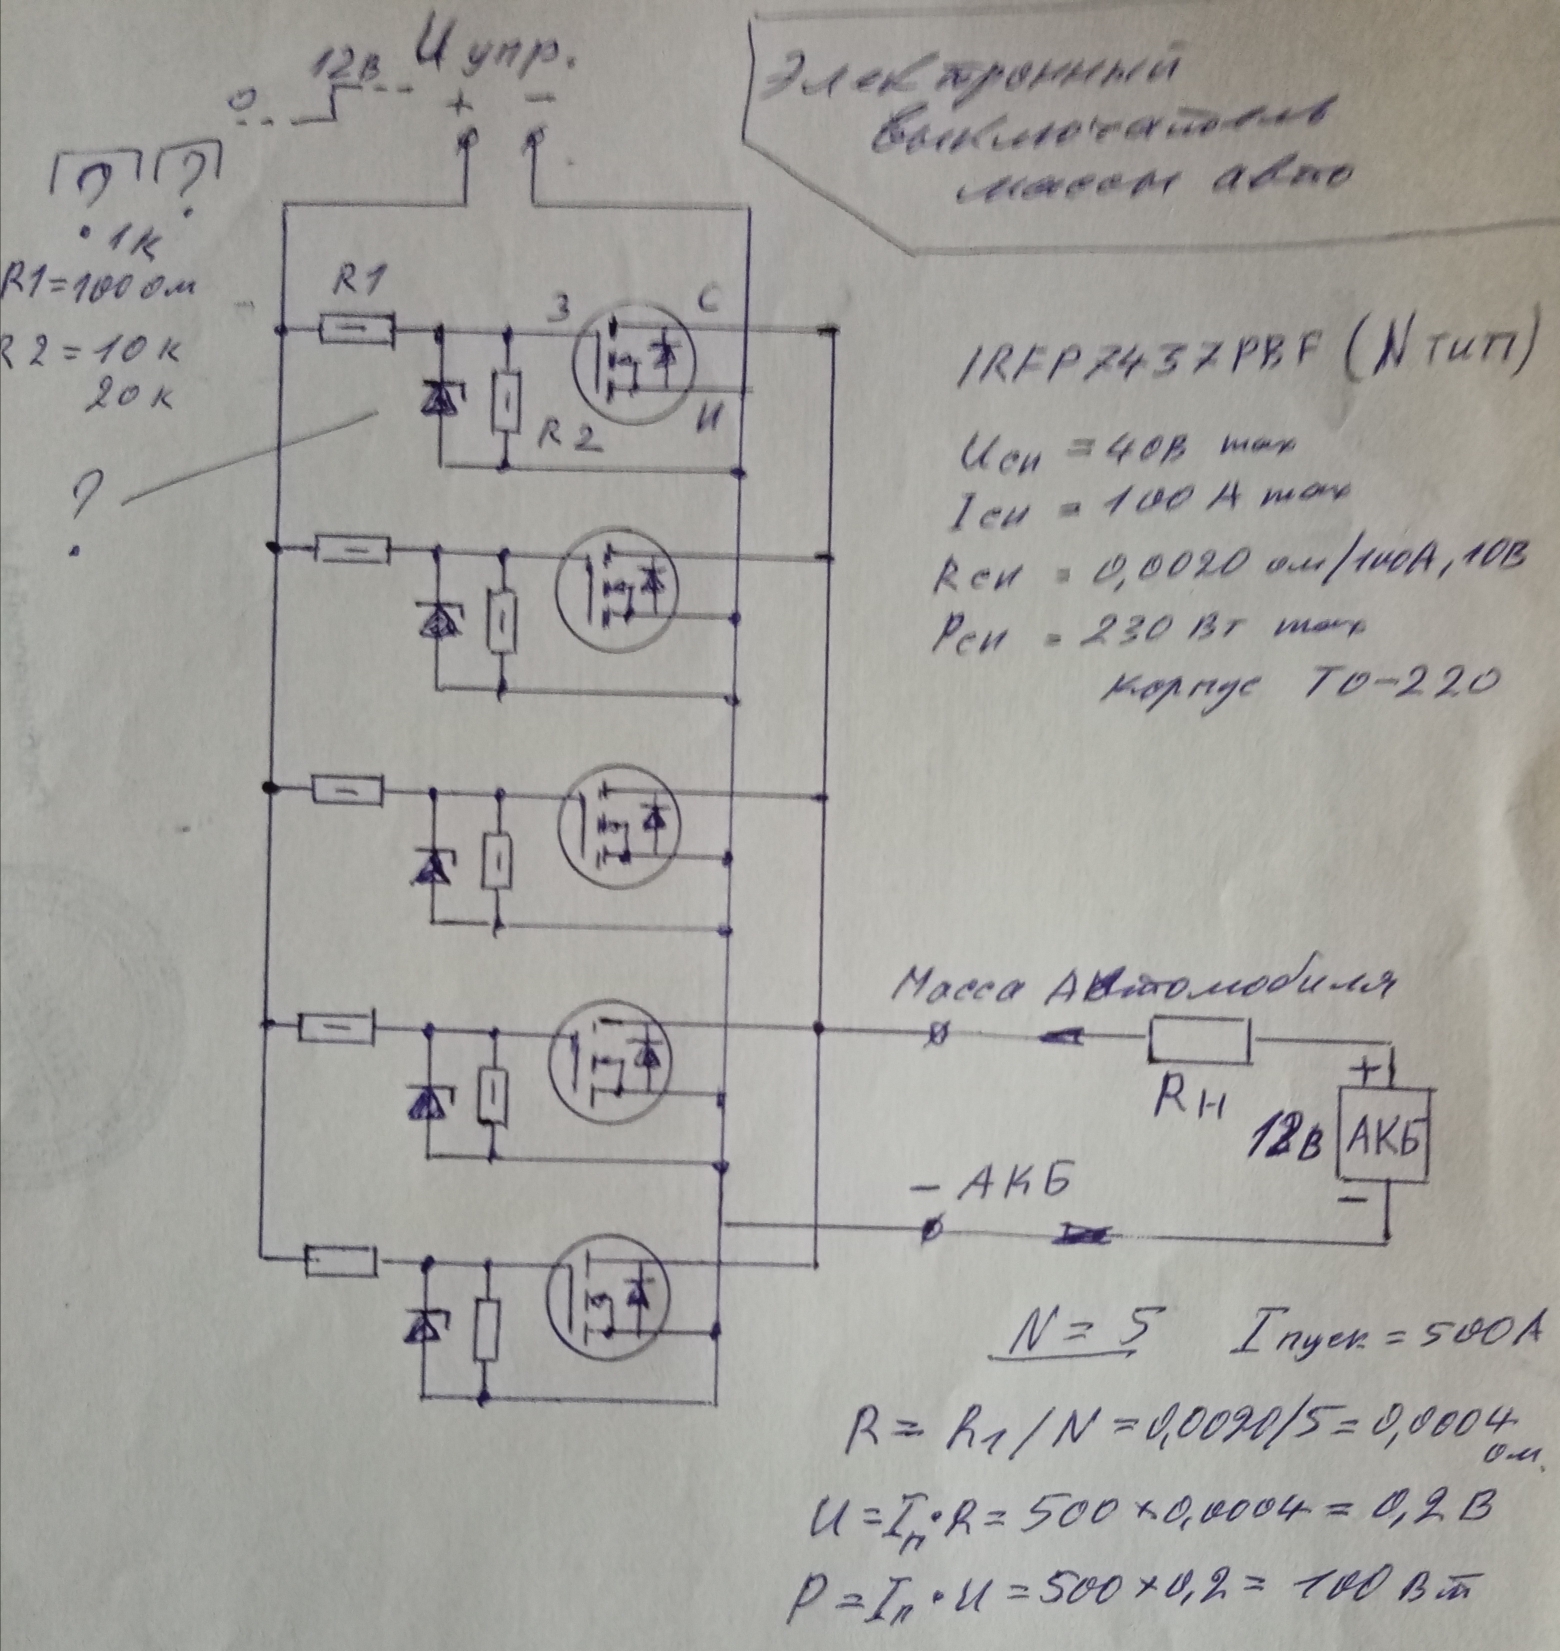 12В U упр.
0 + −
Электронный
выключатель
массы авто
? ?
1К
R1=100 ом
R2=10к
20к
?
R1
З
С
И
R2
IRFP7437PBF (N тип)
Uси = 40В max
Iси = 100 А max
Rси = 0,0020 ом/100А, 10В
Pси = 230 Вт max
корпус ТО-220
Масса Автомобиля
Rн
+
12В
АКБ
−
− АКБ
N = 5 Iпуск = 500А
R = R1/N = 0,0020/5 = 0,0004
ом.
U = Iп·R = 500×0,0004 = 0,2В
P = Iп·U = 500×0,2 = 100 Вт